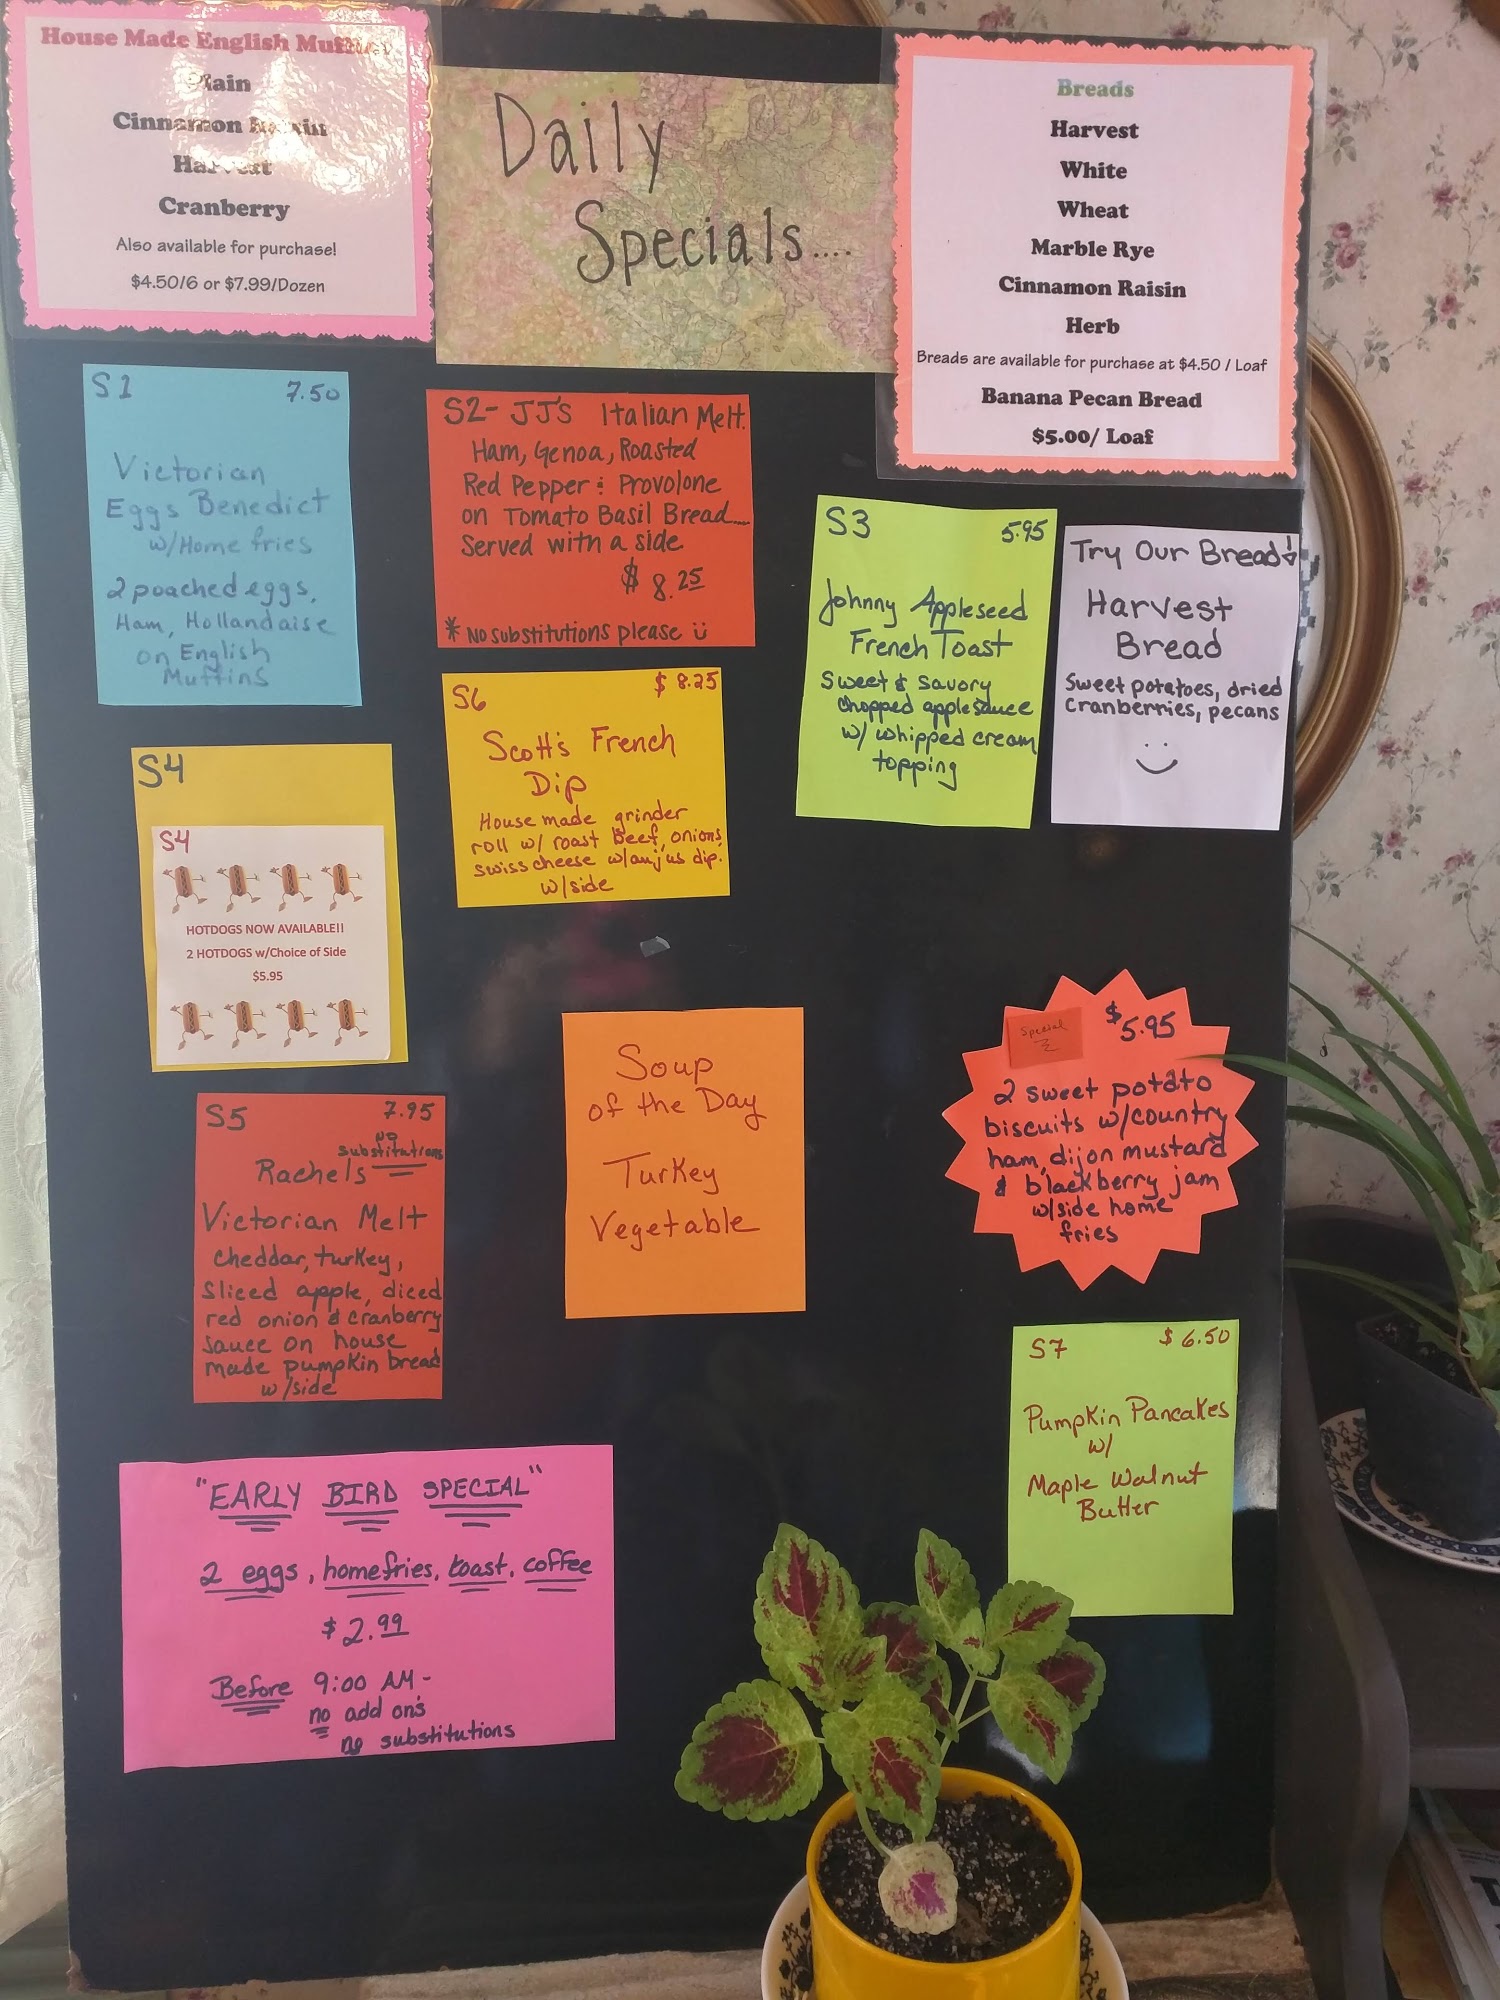 House Made English Muffins
Plain
Cinnamon Raisin
Harvest
Cranberry
Also available for purchase!
$4.50/6 or $7.99/Dozen
Daily
Specials....
Breads
Harvest
White
Wheat
Marble Rye
Cinnamon Raisin
Herb
Breads are available for purchase at $4.50 / Loaf
Banana Pecan Bread
$5.00/ Loaf
S1 7.50
Victorian
Eggs Benedict
w/Home fries
2 poached eggs,
Ham, Hollandaise
on English
Muffins
S2- JJ's Italian Melt.
Ham, Genoa, Roasted
Red Pepper & Provolone
on Tomato Basil Bread....
Served with a side
$8.25
* No substitutions please ü
S3 5.95
Johnny Appleseed
French Toast
Sweet & Savory
chopped applesauce
w/ whipped cream
topping
Try Our Bread↓
Harvest
Bread
Sweet potatoes, dried
Cranberries, pecans
S6 $8.25
Scott's French
Dip
House made grinder
roll w/ roast beef, onions,
swiss cheese w/aujus dip.
w/side
S4
S4
HOTDOGS NOW AVAILABLE!!
2 HOTDOGS w/Choice of Side
$5.95
S5 7.95
no
substitutions
Rachels
Victorian Melt
cheddar, turkey,
Sliced apple, diced
red onion & cranberry
sauce on house
made pumpkin bread
w/side
Soup
of the Day
Turkey
Vegetable
Special
$5.95
2 sweet potato
biscuits w/country
ham, dijon mustard
& blackberry jam
w/side home
fries
S7 $6.50
Pumpkin Pancakes
w/
Maple Walnut
Butter
"EARLY BIRD SPECIAL"
2 eggs, homefries, toast, coffee
$2.99
Before 9:00 AM-
no add on's
no substitutions